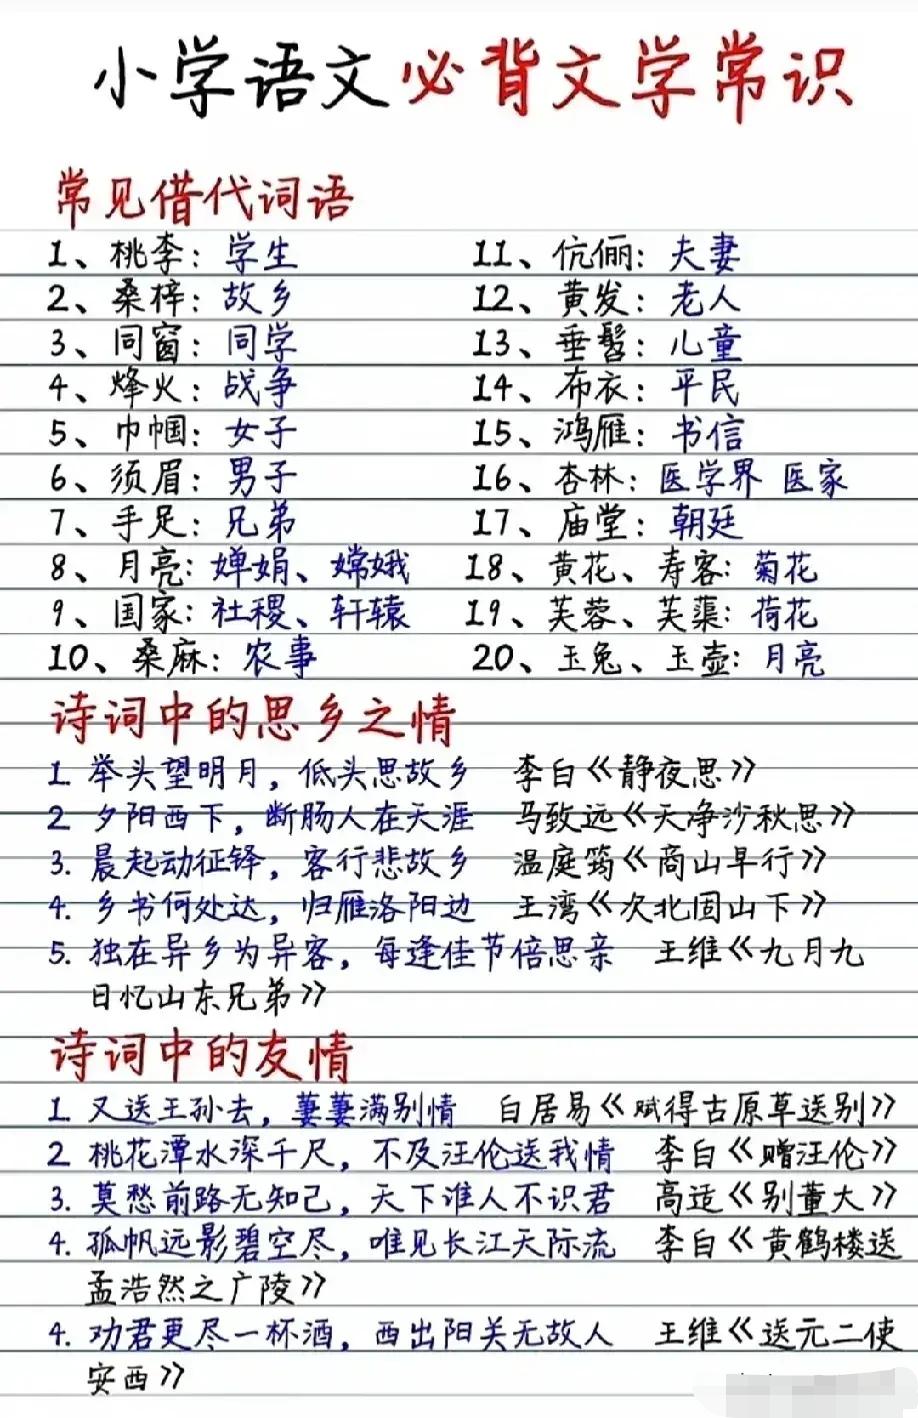 小学语文必背文学常识
常见借代词语
1、桃李：学生
2、桑梓：故乡
3、同窗：同学
4、烽火：战争
5、巾帼：女子
6、须眉：男子
7、手足：兄弟
8、月亮：婵娟、嫦娥
9、国家：社稷、轩辕
10、桑麻：农事
11、伉俪：夫妻
12、黄发：老人
13、垂髫：儿童
14、布衣：平民
15、鸿雁：书信
16、杏林：医学界 医家
17、庙堂：朝廷
18、黄花、寿客：菊花
19、芙蓉、芙蕖：荷花
20、玉兔、玉壶：月亮
诗词中的思乡之情
1 举头望明月，低头思故乡 李白《静夜思》
2 夕阳西下，断肠人在天涯 马致远《天净沙秋思》
3. 晨起动征铎，客行悲故乡 温庭筠《商山早行》
4. 乡书何处达，归雁洛阳边 王湾《次北固山下》
5. 独在异乡为异客，每逢佳节倍思亲 王维《九月九
日忆山东兄弟》
诗词中的友情
1 又送王孙去，萋萋满别情 白居易《赋得古原草送别》
2 桃花潭水深千尺，不及汪伦送我情 李白《赠汪伦》
3. 莫愁前路无知己，天下谁人不识君 高适《别董大》
4. 孤帆远影碧空尽，唯见长江天际流 李白《黄鹤楼送
孟浩然之广陵》
4. 劝君更尽一杯酒，西出阳关无故人 王维《送元二使
安西》